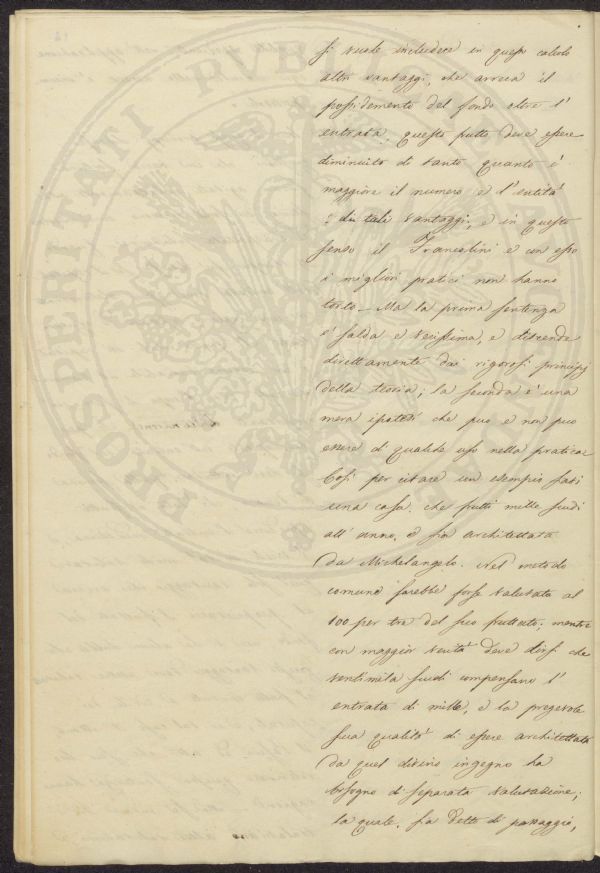 si vuole includere in questo calcolo
altri vantaggi, che arreca il
possedimento del fondo oltre l'
entrata questo frutto deve essere
diminuito di tanto quanto é
maggiore il numero e l'entitá
di tali vantaggi, e in questo
senso il Francolini e con esso
i migliori pratici non hanno
torto - Ma la prima sentenza
é salda e verissima, e discende
direttamente dai rigorosi principj
della teoria; la seconda é una
mera ipotesi che puo e non puo
essere di qualche uso nella pratica
Cosi per citare un esempio siavi
una casa, che frutti mille scudi
all' anno, e sia architettata
da Michelangelo. Nel metodo
comune sarebbe forse valutata al
100 per tre del suo fruttato: mentre
con maggior veritá deve dirsi che
ventimila scudi compensano l'
entrata di mille, e la pregevole
sua qualitá di essere architettata
da quel divino ingegno ha
bisogno di separata valutazione;
la quale, sia detto di passaggio,
PROSPERITATI PVBLICAE